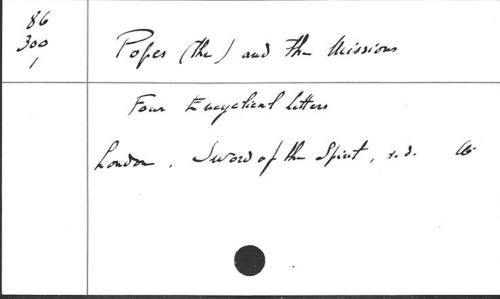 86
300
1
Popes (the) and the Missions
Four Encyclical Letters
London, Sword of the Spirit, s.d.